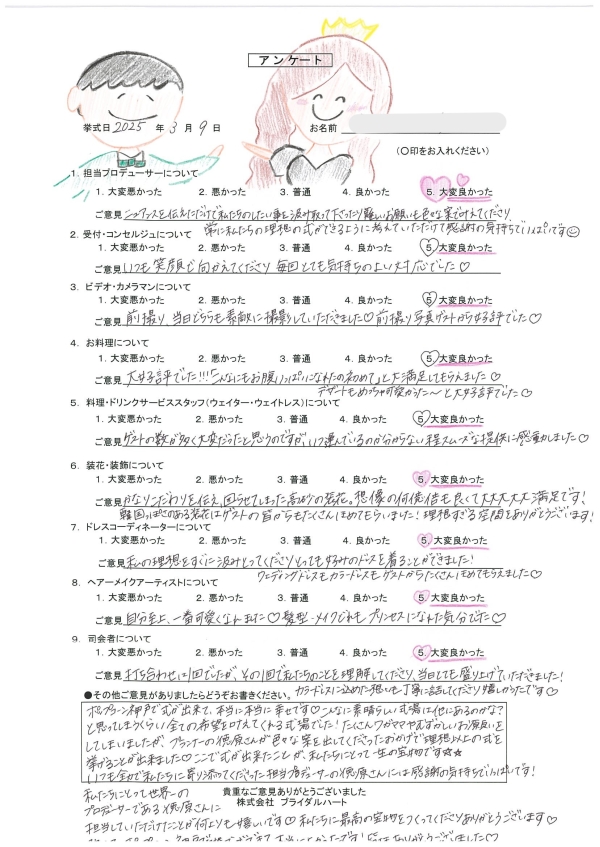 アンケート
挙式日 2025 年 3 月 9 日 お名前
(〇印をお入れください)
1. 担当プロデューサーについて
1. 大変悪かった 2. 悪かった 3. 普通 4. 良かった 5. 大変良かった
ご意見 ニュアンスを伝えただけで私たちのしたい事を汲み取って下さったり難しいお願いも色々な案で叶えてくださり、
常に私たちの理想の式ができるように考えていただけて感謝の気持ちでいっぱいです
2. 受付・コンセルジュについて
1. 大変悪かった 2. 悪かった 3. 普通 4. 良かった 5. 大変良かった
ご意見 いつも笑顔で向かえてくださり毎回とても気持ちのよい対応でした♡
3. ビデオ・カメラマンについて
1. 大変悪かった 2. 悪かった 3. 普通 4. 良かった 5. 大変良かった
ご意見 前撮り、当日どちらも素敵に撮影していただきました♡前撮り写真ゲストから好評でした♡
4. お料理について
1. 大変悪かった 2. 悪かった 3. 普通 4. 良かった 5. 大変良かった
ご意見 大好評でした!!!「こんなにもお腹いっぱいになれたの初めて」と大満足してもらえました♡
デザートもめっちゃ可愛かった〜と大好評でした♡
5. 料理・ドリンクサービススタッフ(ウェイター・ウェイトレス)について
1. 大変悪かった 2. 悪かった 3. 普通 4. 良かった 5. 大変良かった
ご意見 ゲストの数が多く大変だったと思うのですが、いつ運んでいるのか分からない程スムーズな提供に感動しました♡
6. 装花・装飾について
1. 大変悪かった 2. 悪かった 3. 普通 4. 良かった 5. 大変良かった
ご意見 かなりこだわりを伝え、困らせてしまった高砂の装花。想像の何倍倍も良くて大大大大大満足です!
韓国っぽさのある装花はゲストの皆からもたくさんほめてもらいました!理想すぎる空間をありがとうございます!
7. ドレスコーディネーターについて
1. 大変悪かった 2. 悪かった 3. 普通 4. 良かった 5. 大変良かった
ご意見 私の理想をすぐに汲みとってくださりとっても好みのドレスを着ることができました!
ウェディングドレスもカラードレスもゲストからたくさんほめてもらえました♡
8. ヘアーメイクアーティストについて
1. 大変悪かった 2. 悪かった 3. 普通 4. 良かった 5. 大変良かった
ご意見 自分至上、一番可愛くなれました♡髪型・メイクどれもプリンセスになれた気分でした♡
9. 司会者について
1. 大変悪かった 2. 悪かった 3. 普通 4. 良かった 5. 大変良かった
ご意見 打ち合わせは1回でしたが、その1回で私たちのことを理解してくださり、当日とても盛り上げていただきました!
カラードレスに込めた想いも丁寧に話してくださり嬉しかったです♡
●その他ご意見がありましたらどうぞお書きください。
神戸で式が出来て、本当に本当に幸せです♡こんなに素晴らしい式場は他にあるのかな?
と思ってしまうくらい全ての希望を叶えてくれる式場でした!たくさんワガママやむずかしいお願いを
してしまいましたが、プランナーの徳原さんが色々な案を出してくださったおかげで理想以上の式を
挙げることが出来ました♡ここで式が出来たことが、私たちにとって一生の宝物です☆★
いつも全力で私たちに寄り添ってくださった担当プロデューサーの徳原さんには感謝の気持ちでいっぱいです!
貴重なご意見ありがとうございました
株式会社 ブライダルハート
私たちにとって世界一の
プロデューサーである徳原さんに
担当していただけたことが何よりも嬉しいです♡私たちに最高の宝物をつくってくださりありがとうございます♡